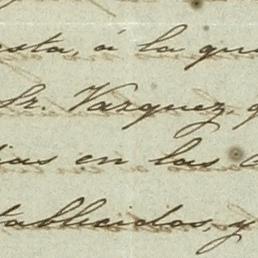 esta, á la que
Sr. Vazquez,
dias en las
tablecidos, y